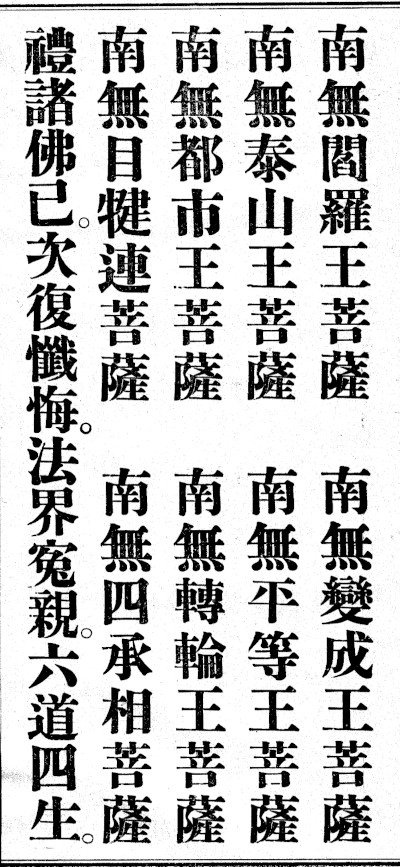 南無閻羅王菩薩　南無變成王菩薩
南無泰山王菩薩　南無平等王菩薩
南無都市王菩薩　南無轉輪王菩薩
南無目犍連菩薩　南無四承相菩薩
禮諸佛已。次復懺悔。法界寃親。六道四生。